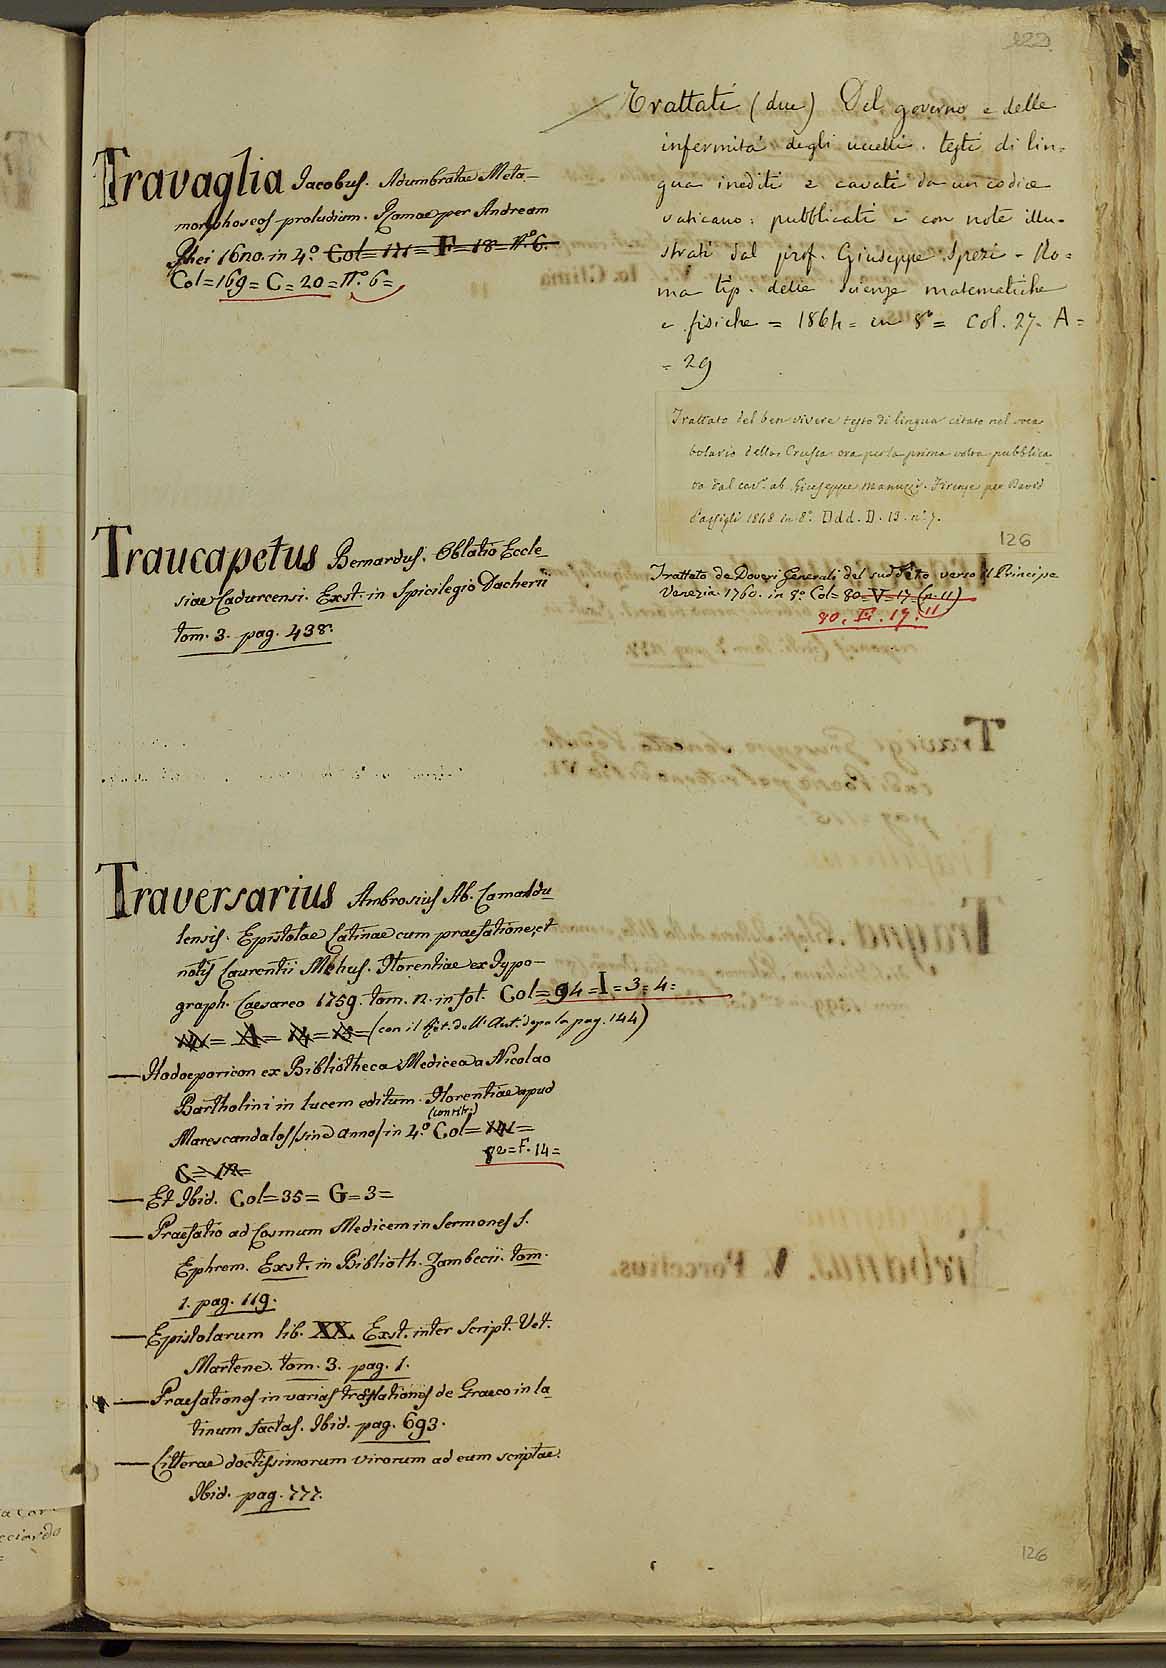 Travaglia Jacobus. Adumbratae Meta-
morphoseos proludium. Romae per Andream
Phei 1670. in 4.° Col=171=F=18=N.°6.
Col=169=C=20=N.°6=
Traucapetus Bernardus. Oblatio Eccle
siae Cadurcensi. Exst. in Spicilegio Dacherii
tom. 3. pag. 438.
Traversarius Ambrosius Ab. Camaldu
lensis. Epistolae Latinae cum praefatione, et
notis Laurentii Mehus. Florentiae ex Typo-
graph. Caesareo 1759. tom. II. in fol. Col=94=I=3=4=
=A=14=15=(con il Rit. dell'Aut. dopo la pag. 144)
—Hodoeporicon ex Bibliotheca Medicea a Nicolao
Bartholini in lucem editum. Florentiae apud
(con ritr.)
Marescandalos (sine anno) in 4.° Col=
92=F.14=
C=
—Et Ibid. Col=35=G=3=
—Praefatio ad Cosmum Medicem in Sermones S.
Ephrem. Exst. in Biblioth. Zambecii. tom.
1. pag. 119.
—Epistolarum lib. XX. Exst. inter Script. Vet.
Martene. tom. 3. pag. 1.
—Praefationes in varias translationes de Graeco in la
tinum factas. Ibid. pag. 693.
—Litterae doctissimorum virorum ad eum scriptae.
Ibid. pag. 777.
122
Trattati (due) Del governo e delle
infermità degli uccelli. testi di lin=
gua inediti e cavati da un codice
vaticano: pubblicati e con note illu-
strati dal prof. Giuseppe Spezi - Ro=
ma tip. delle scienze matematiche
e fisiche = 1864 = in 8° = Col. 27. A=
= 29
Trattato del ben vivere testo di lingua citato nel voca
bolario della Crusca ora per la prima volta pubblica
to dal cav. ab. Giuseppe Manuzzi. Firenze per David
Passigli 1848 in 8.° Ddd. D. 13. n° 7.
126
Trattato de Doveri Generali del suddito verso il Principe
Venezia. 1760. in 8.° Col=80=V=17=(n. 11)
80. E. 17. 11
126